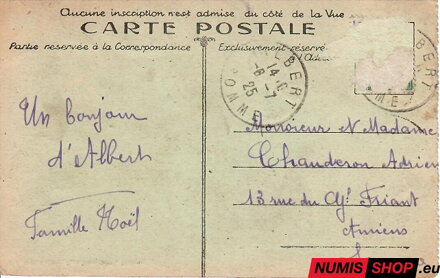 Aucune inscription n'est admise du côté de la Vue
CARTE POSTALE
Partie réservée à la Correspondance
Exclusivement réservé
ALBERT
14 15
6 - 7
25
SOMME
Un bonjour
d'Albert
Famille Noël
Monsieur et Madame
Chanderon Adrien
13 rue du Gl Friant
Amiens
NUMIS SHOP.eu